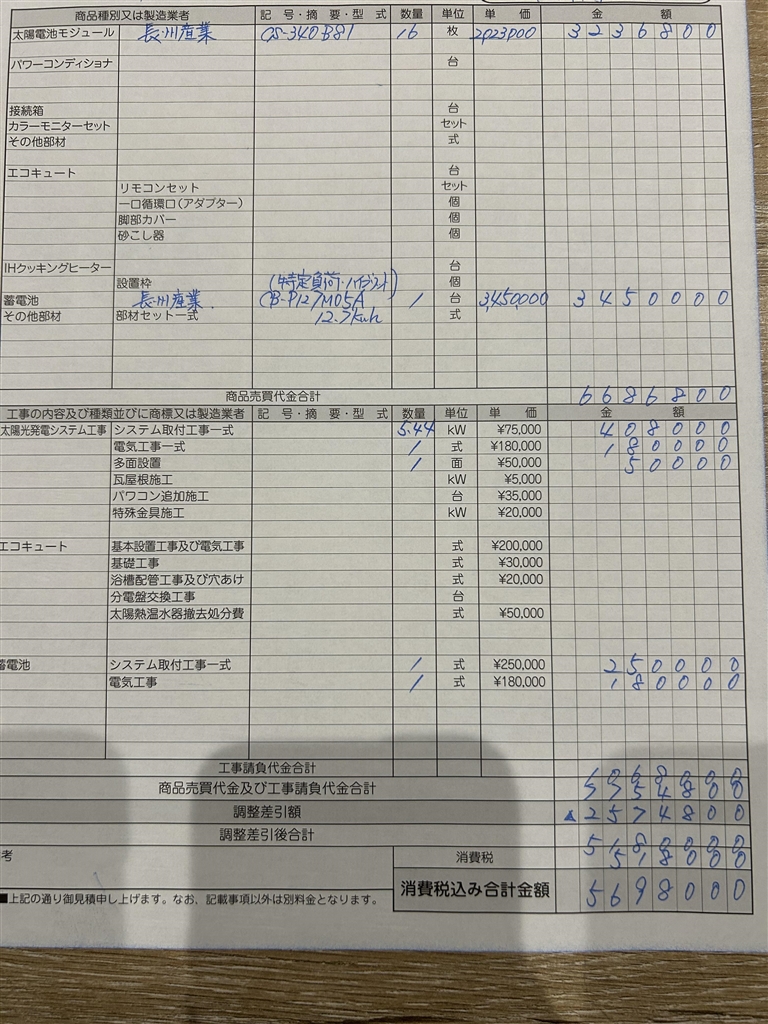 商品種別又は製造業者 記号・摘要・型式 数量 単位 単価 金額
太陽電池モジュール 長州産業 CS-340B81 16 枚 3236800
パワーコンディショナ 台
接続箱 台
カラーモニターセット セット
その他部材 式
エコキュート 台
リモコンセット セット
一口循環口(アダプター) 個
脚部カバー 個
砂こし器 個
IHクッキングヒーター 台
設置枠 (特定負荷・ハイブリッド) 個
蓄電池 長州産業 CB-P127M05A 1 台 3,450,000 3450000
その他部材 部材セット一式 12.7kwh 式
商品売買代金合計 6686800
工事の内容及び種類並びに商標又は製造業者 記号・摘要・型式 数量 単位 単価 金額
太陽光発電システム工事 システム取付工事一式 5.44 kW ¥75,000 408000
電気工事一式 1 式 ¥180,000 180000
多面設置 1 面 ¥50,000 50000
瓦屋根施工 kW ¥5,000
パワコン追加施工 台 ¥35,000
特殊金具施工 kW ¥20,000
エコキュート 基本設置工事及び電気工事 式 ¥200,000
基礎工事 式 ¥30,000
浴槽配管工事及び穴あけ 式 ¥20,000
分電盤交換工事 台
太陽熱温水器撤去処分費 式 ¥50,000
蓄電池 システム取付工事一式 1 式 ¥250,000 250000
電気工事 1 式 ¥180,000 180000
工事請負代金合計 1068000
商品売買代金及び工事請負代金合計 7754800
調整差引額 ▲2574800
調整差引後合計 5180000
考 消費税 518000
■上記の通り御見積申し上げます。なお、記載事項以外は別料金となります。 消費税込み合計金額 5698000